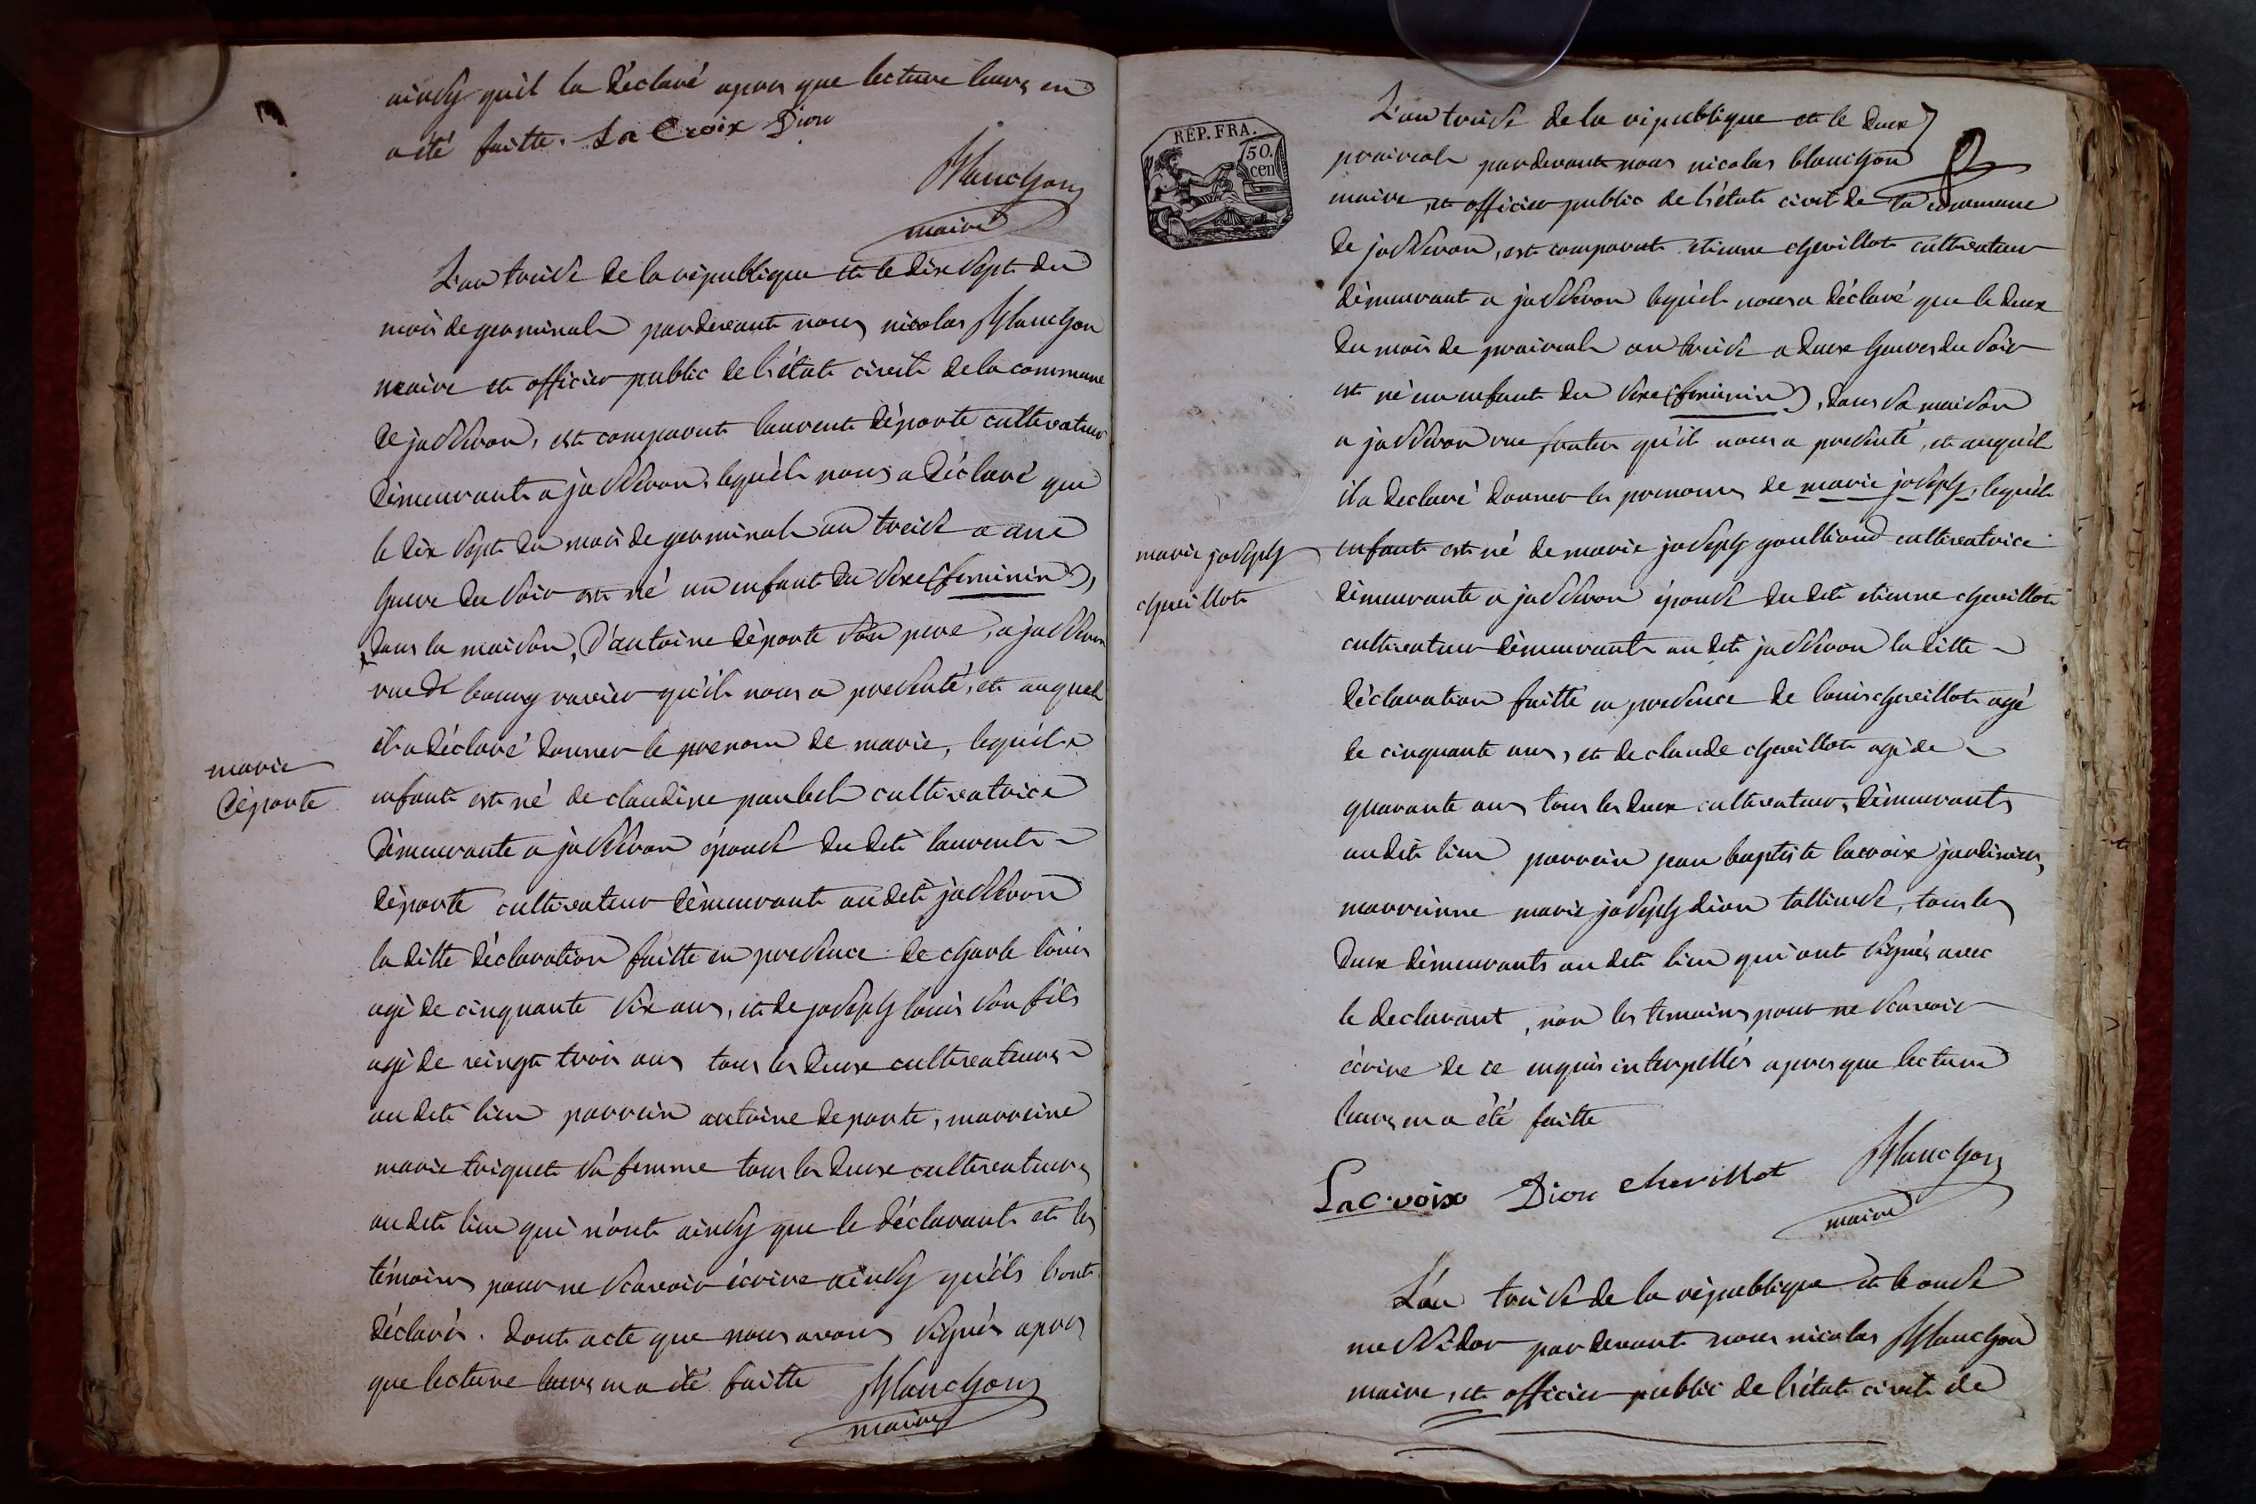 ainsy quil la déclaré apres que lecture leurs en
a été faitte. La Croix Dion
Blanchon
maire
L'an treise de la république et le dix sept du
mois de germinale pardevant nous nicolas Blanchon
maire et officier public de l'état civile de la commune
de jasseron, est comparut laurent déporte cultivateur
démeurant a jasseron, lequél nous a déclaré que
le dix sept du mois de germinal an treise a une
heure du soir est né un enfant du sexe (feminin),
dans la maison, d'antoine déporte son pere, a jasseron
rue de bourg qu'il nous a presenté, et auquel
il a déclaré donner le prenom de marie, lequél
marie
déporte
enfant est né de claudine cultivatrice
démeurante a jasseron épouse du dit laurent
déporte cultivateur démeurant au dit jasseron
la ditte déclaration faitte en presence de charle louis
agé de cinquante six ans, et de joseph louis son fils
agé de vingt trois ans tous les deux cultivateurs
au dit lieu parrein antoine deporte, marreine
marie triquet sa femme tous les deux cultivateurs
au dit lieu qui n'ont ainsy que le déclarant et les
témoins pour ne scavoir écrire ainsy qu'ils l'ont
déclarés. dont acte que nous avons signés apres
que lecture leurs en a été faitte Blanchon
maire
REP. FRA.
50.
cen
L'an treise de la république et le deux
prairial pardevant nous nicolas blanchon
maire, et officier public de l'état civil de la commune
de jasseron, est comparut etienne chevillot cultivateur
démeurant a jasseron lequél nous a déclaré que le deux
du mois de prairial an treise a deux heures du soir
est né un enfant du sexe (feminin), dans sa maison
a jasseron rue qu'il nous a presenté, et auquél
il a declaré donner les prenoms de marie joseph, lequél
marie joseph
chevillot
enfant est né de marie joseph goullioud cultivatrice
démeurante a jasseron épouse du dit etienne chevillot
cultivateur démeurant au dit jasseron la ditte
déclaration faitte en presence de louis chevillot agé
de cinquante ans, et de claude chevillot agé de
quarante ans tous les deux cultivateurs, démeurants
au dit lieu parrein jean baptiste lacroix jardinier,
marreinne marie joseph dion tallieuse, tous les
deux démeurants au dit lieu qui ont signés avec
le declarant, non les temoins pour ne scavoir
écrire de ce enquis interpellés apres que lecture
leurs en a été faitte
Lacroix Dion chevillot Blanchon
maire
L'an treise de la république et le onse
messidor pardevant nous nicolas Blanchon
maire, et officier public de l'état civile de